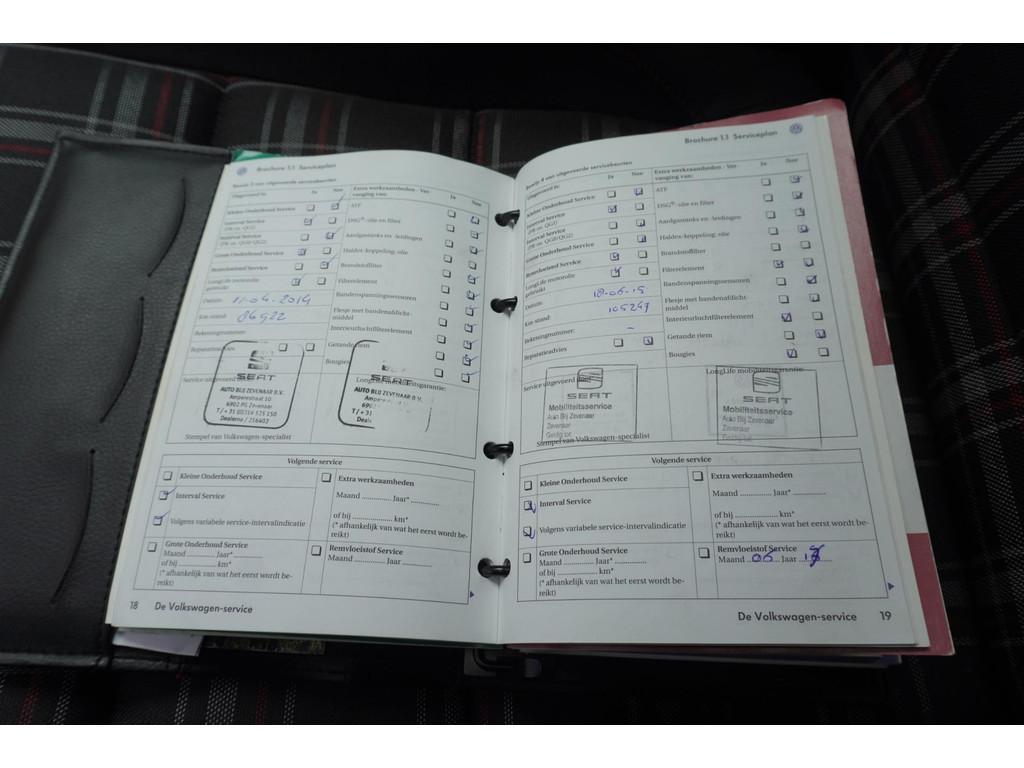 Brochure 1.1 Serviceplan
Bewijs 3 van uitgevoerde servicebeurten
Uitgevoerd is: Ja Nee
Kleine Onderhoud Service
Interval Service
(PR-nr. QG1)
Interval Service
(PR-nr. QG0/QG2)
Grote Onderhoud Service
Remvloeistof Service
LongLife motorolie
gebruikt
Datum: 11-04-2014
Km-stand: 86922
Rekeningnummer:
Reparatieadvies
Extra werkzaamheden - Ver-
vanging van: Ja Nee
ATF
DSG®-olie en filter
Aardgastanks en -leidingen
Haldex-koppeling: olie
Brandstoffilter
Filterelement
Bandenspanningssensoren
Flesje met bandenafdicht-
middel
Interieurluchtfilterelement
Getande riem
Bougies
Service uitgevoerd door:
LongLife mobiliteitsgarantie:
SEAT
AUTO BLIJ ZEVENAAR B.V.
Amperestraat 10
6902 PG Zevenaar
T/+ 31 (0)314 525 150
Dealerno / 216402
SEAT
AUTO BLIJ ZEVENAAR B.V.
Stempel van Volkswagen-specialist
Volgende service
Kleine Onderhoud Service
Interval Service
Volgens variabele service-intervalindicatie
Grote Onderhoud Service
Maand ............ Jaar* ............
of bij ............ km*
(* afhankelijk van wat het eerst wordt be-
reikt)
Extra werkzaamheden
Maand ............ Jaar* ............
of bij ............ km*
(* afhankelijk van wat het eerst wordt be-
reikt)
Remvloeistof Service
Maand ............ Jaar ............
18 De Volkswagen-service
Brochure 1.1 Serviceplan
Bewijs 4 van uitgevoerde servicebeurten
Uitgevoerd is: Ja Nee
Kleine Onderhoud Service
Interval Service
(PR-nr. QG1)
Interval Service
(PR-nr. QG0/QG2)
Grote Onderhoud Service
Remvloeistof Service
LongLife motorolie
gebruikt
Datum: 18-06-15
Km-stand: 105247
Rekeningnummer: –
Reparatieadvies
Extra werkzaamheden - Ver-
vanging van: Ja Nee
ATF
DSG®-olie en filter
Aardgastanks en -leidingen
Haldex-koppeling: olie
Brandstoffilter
Filterelement
Bandenspanningssensoren
Flesje met bandenafdicht-
middel
Interieurluchtfilterelement
Getande riem
Bougies
Service uitgevoerd door:
LongLife mobiliteitsgarantie:
SEAT
Mobiliteitsservice
Auto Blij Zevenaar
Zevenaar
Geldig tot
SEAT
Mobiliteitsservice
Auto Blij Zevenaar
Zevenaar
Stempel van Volkswagen-specialist
Volgende service
Kleine Onderhoud Service
Interval Service
Volgens variabele service-intervalindicatie
Grote Onderhoud Service
Maand ............ Jaar* ............
of bij ............ km*
(* afhankelijk van wat het eerst wordt be-
reikt)
Extra werkzaamheden
Maand ............ Jaar* ............
of bij ............ km*
(* afhankelijk van wat het eerst wordt be-
reikt)
Remvloeistof Service
Maand 06 Jaar
De Volkswagen-service 19